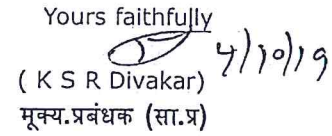 Yours faithfully
4/10/19
( K S R Divakar)
मूक्य.प्रबंधक (सा.प्र)